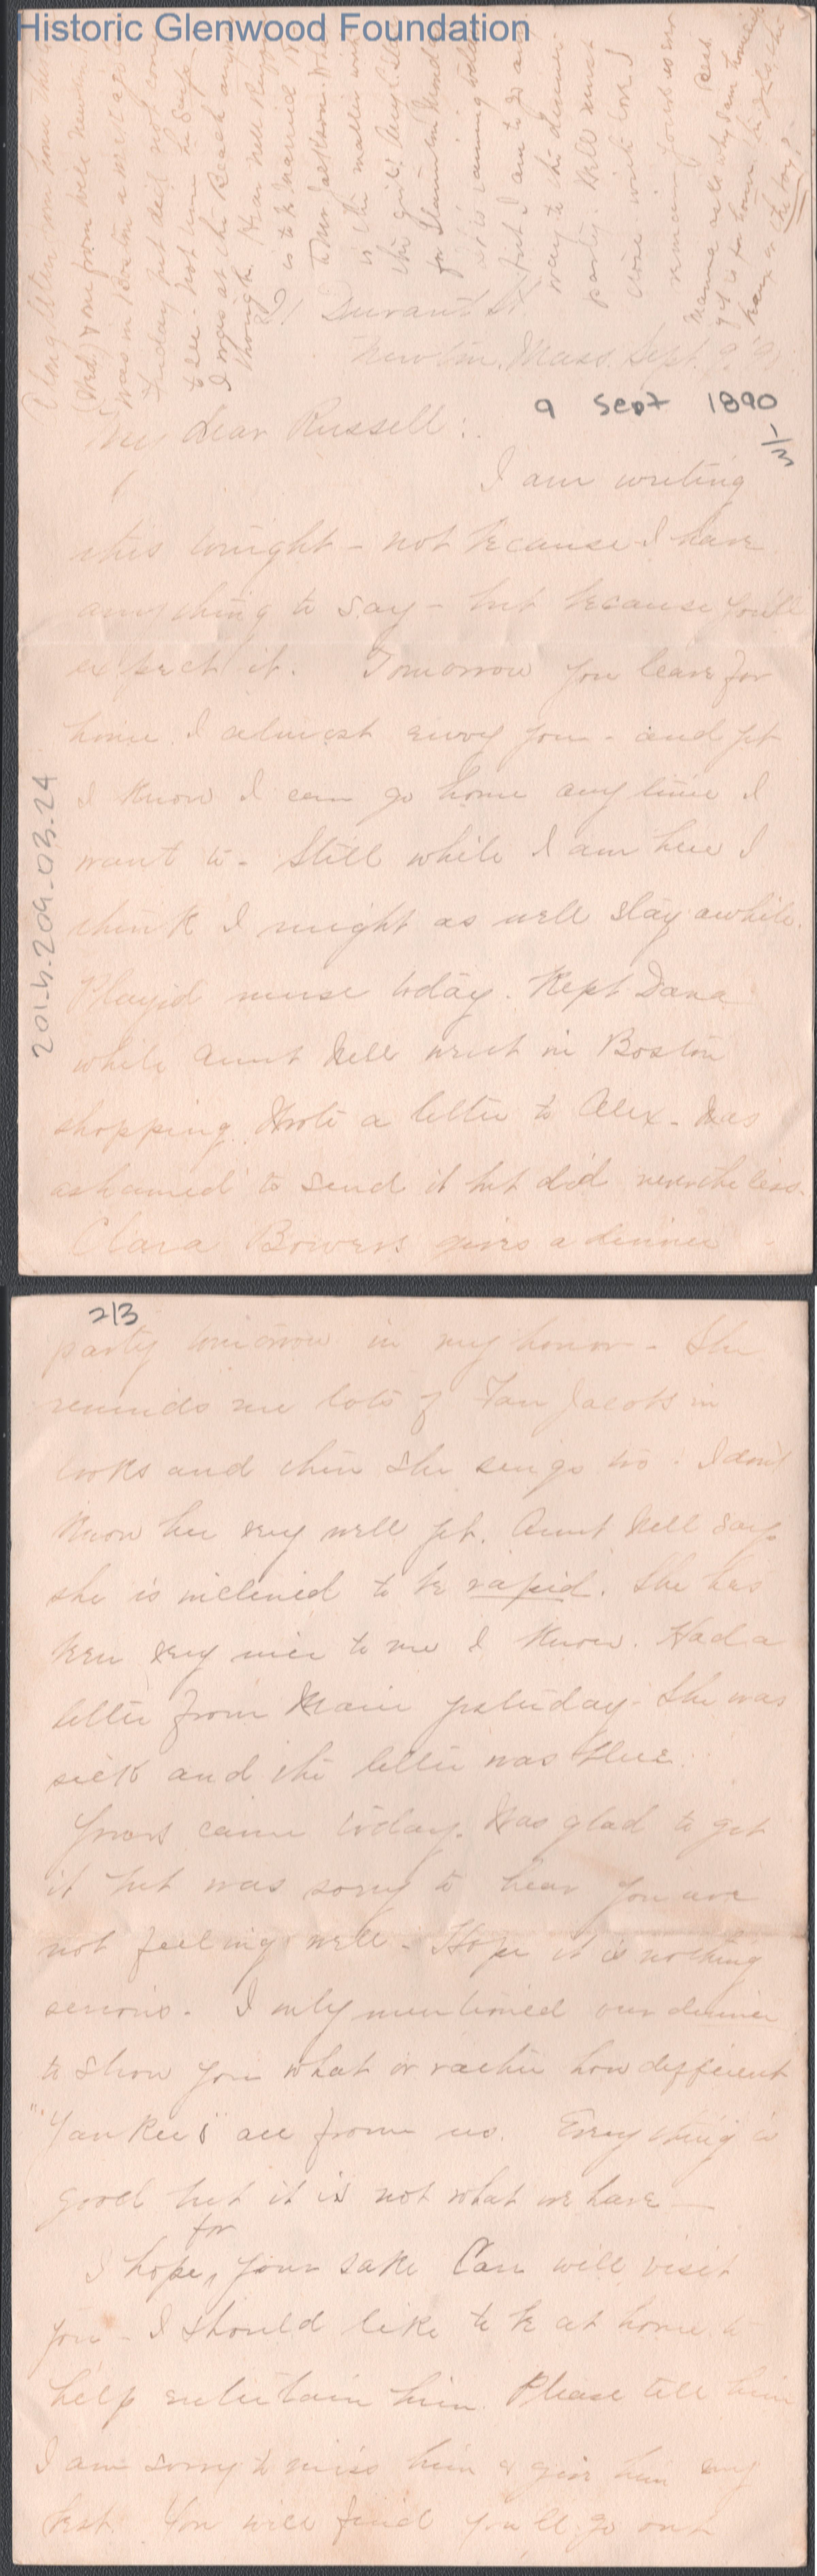 Historic Glenwood Foundation
A long letter from home this
(Wed.) & one from Nell
was in Boston a week ago
Friday but did not come
to see - not even
I was at the Beach any
though. Hear Nell
is to be married
to Mr Jackson.
is the matter with
the girls?
for Monday
as is
but I am to go
way to the dinner
party. Will must
close with love I
remain yours as ever
Bert
Mamma asks why I am
if it is for home, the girls, the
or the boy?
21 Durant St.
Newton, Mass. Sept. 9. '90
9 Sept 1890
1/3
My dear Russell:.
I am writing
this tonight - not because I have
anything to say - but because you'll
expect it. Tomorrow you leave for
home. I almost envy you - and yet
I know I can go home any time I
want to. Still while I am here I
think I might as well stay awhile.
Play'd nurse today. Kept Dana
while Aunt Nell went in Boston
shopping. Wrote a letter to Alex. Was
ashamed to send it but did nevertheless.
Clara Bowers gives a dinner
201.4.209.03.24
2/3
party tomorrow in my honor - She
reminds me lots of Fan Jacobs in
looks and then she sings too. I don't
know her very well yet. Aunt Nell says
she is inclined to be rapid. She has
been very nice to me I know. Had a
letter from yesterday - She was
sick and the letter was blue.
Yours came today. Was glad to get
it but was sorry to hear you are
not feeling well - Hope it is nothing
serious. I only mentioned our dinner
to show you what or rather how different
"Yankees" are from us. Everything is
good but it is not what we have —
for
I hope, your sake Can will visit
you - I should like to be at home to
help entertain him. Please tell him
I am sorry to miss him & give him my
best. You will find you'll go out